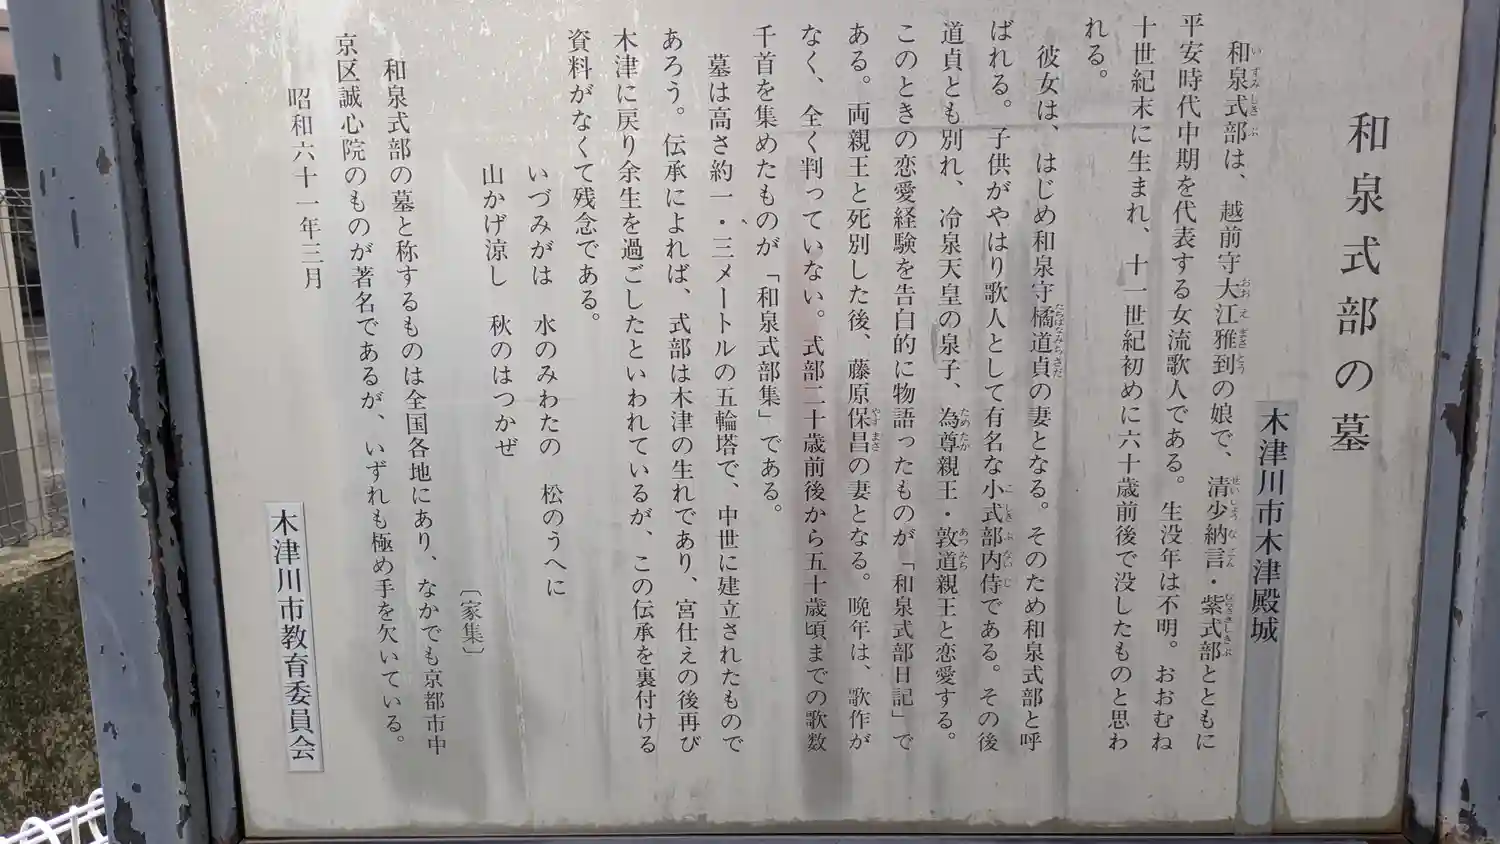 和泉式部の墓
木津川市木津殿城
和泉式部は、越前守大江雅到の娘で、清少納言・紫式部とともに
平安時代中期を代表する女流歌人である。生没年は不明。おおむね
十世紀末に生まれ、十一世紀初めに六十歳前後で没したものと思わ
れる。
彼女は、はじめ和泉守橘道貞の妻となる。そのため和泉式部と呼
ばれる。子供がやはり歌人として有名な小式部内侍である。その後
道貞とも別れ、冷泉天皇の泉子、為尊親王・敦道親王と恋愛する。
このときの恋愛経験を告白的に物語ったものが「和泉式部日記」で
ある。両親王と死別した後、藤原保昌の妻となる。晩年は、歌作が
なく、全く判っていない。式部二十歳前後から五十歳頃までの歌数
千首を集めたものが「和泉式部集」である。
墓は高さ約一・三メートルの五輪塔で、中世に建立されたもので
あろう。伝承によれば、式部は木津の生れであり、宮仕えの後再び
木津に戻り余生を過ごしたといわれているが、この伝承を裏付ける
資料がなくて残念である。
いづみがは 水のみわたの 松のうへに
山かげ涼し 秋のはつかぜ
〔家集〕
和泉式部の墓と称するものは全国各地にあり、なかでも京都市中
京区誠心院のものが著名であるが、いずれも極め手を欠いている。
昭和六十一年三月
木津川市教育委員会